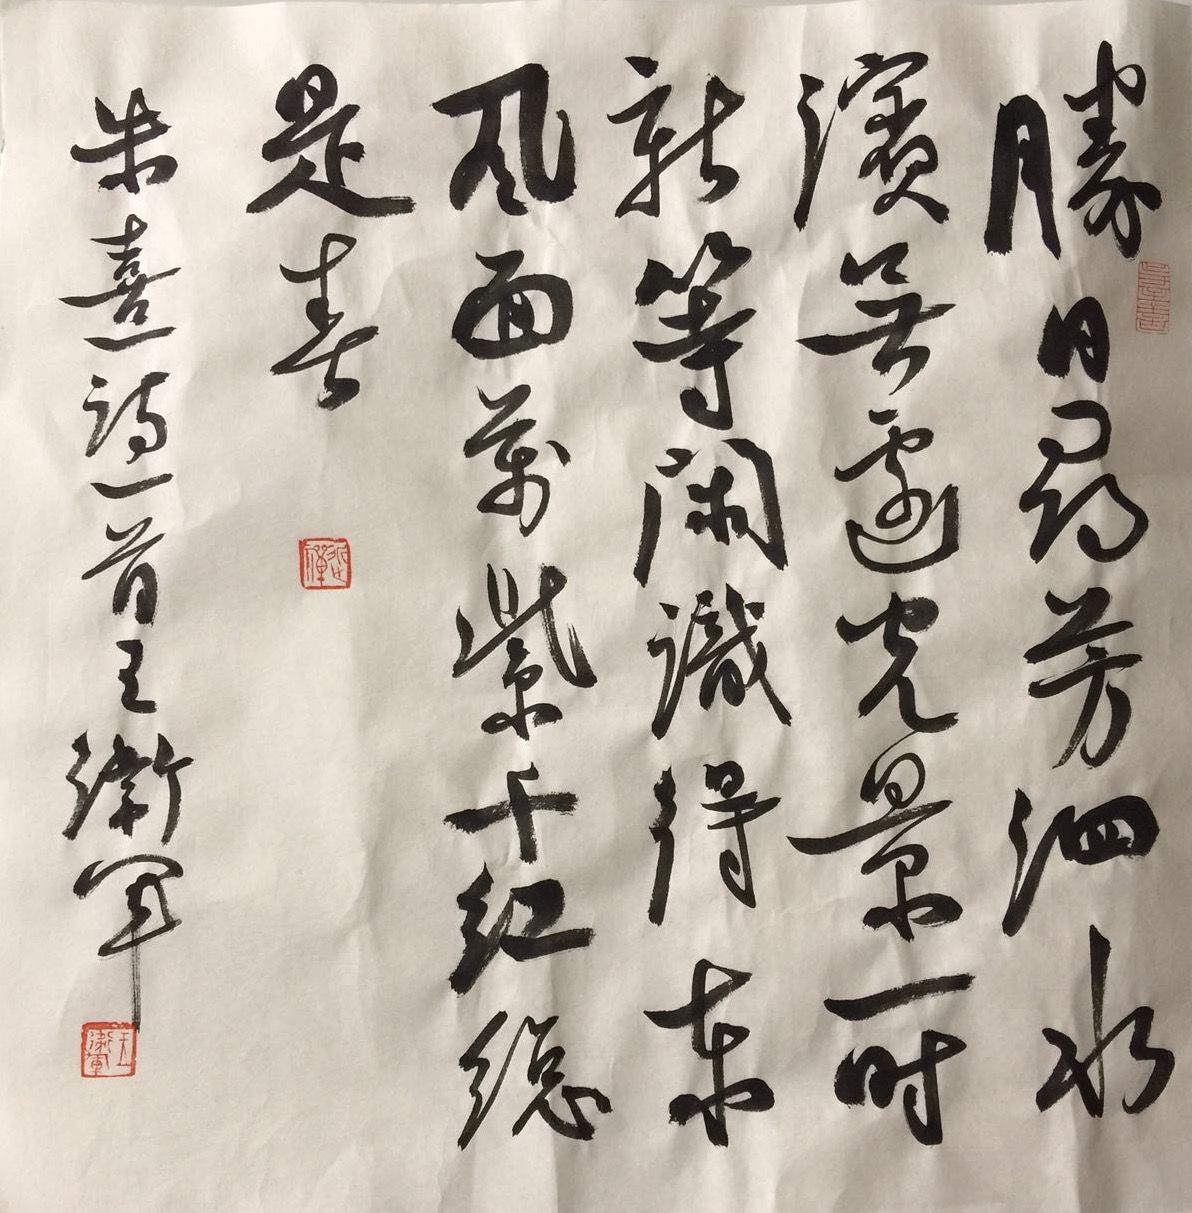 勝日尋芳泗水
濱無邊光景一時
新等閑識得东
風面萬紫千红總
是春
朱熹詩一首王衛军
王衛軍